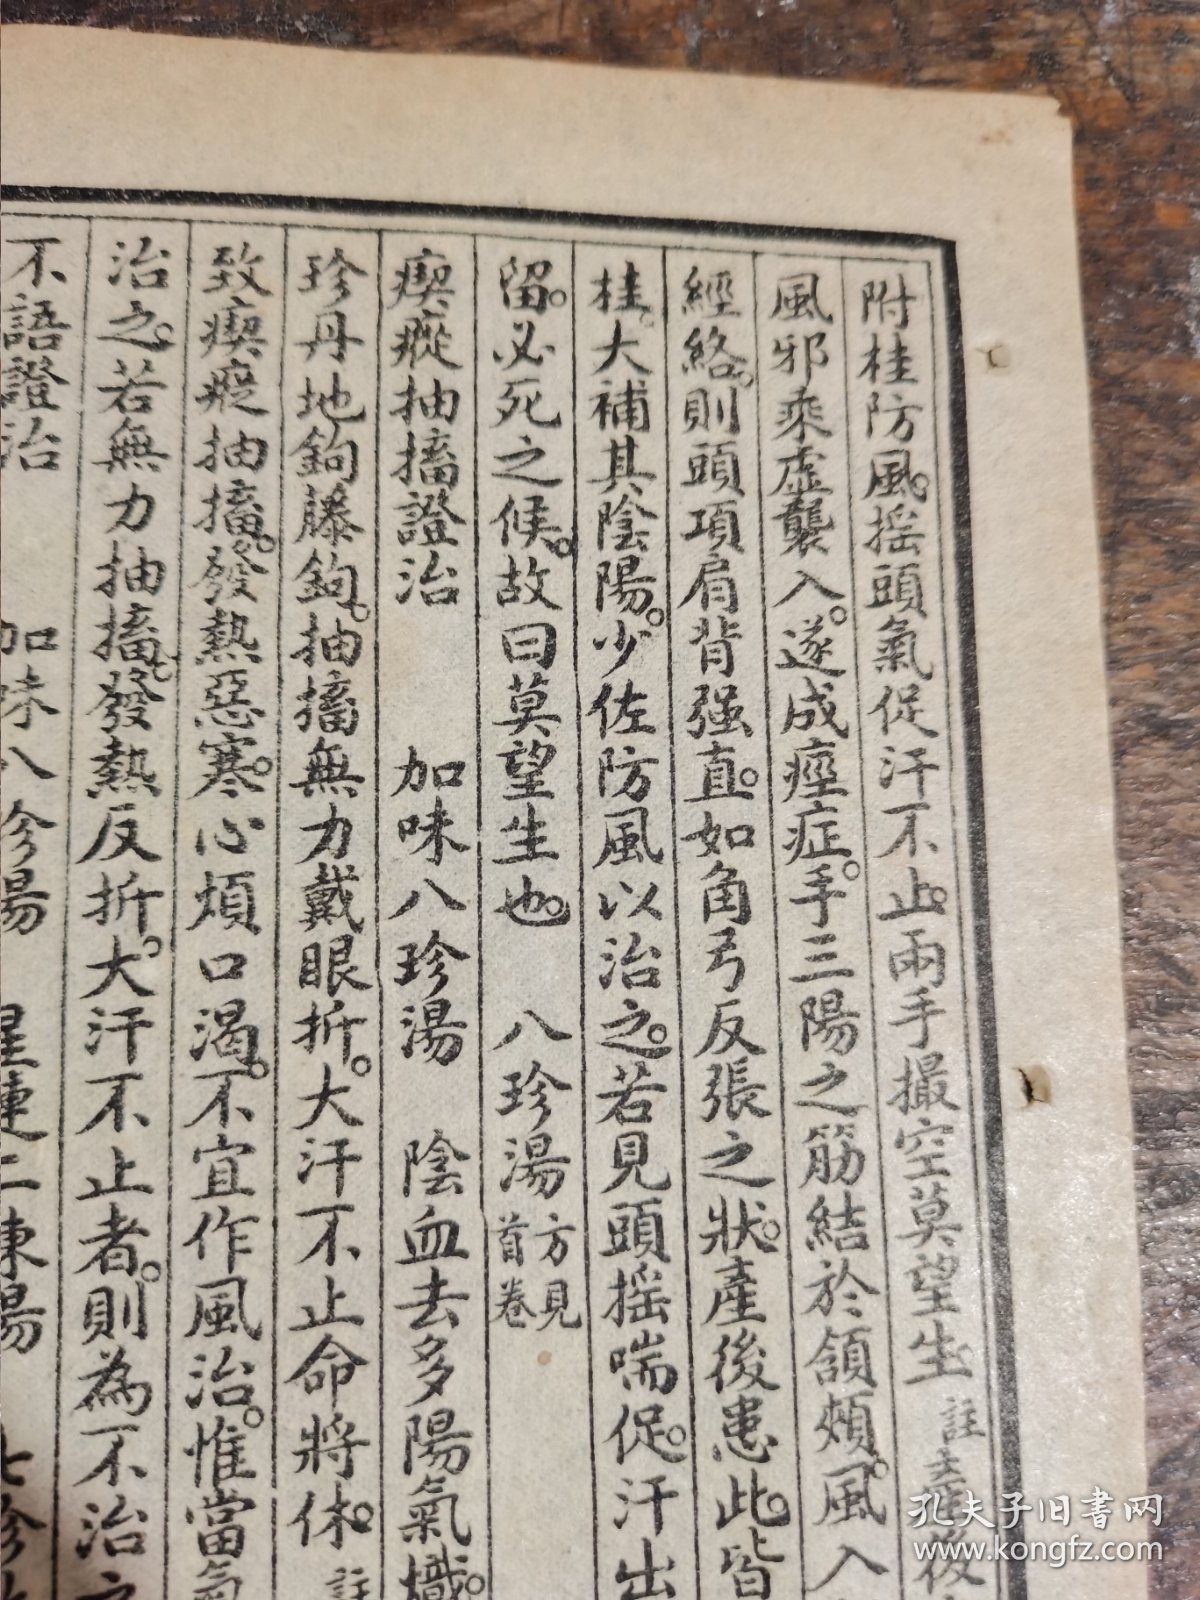 附桂防風。揺頭氣促汗不止。兩手撮空莫望生。註産後
風邪乘虛襲入。遂成痙症。手三陽之筋結於頷頰。風入
經絡。則頭項肩背强直。如角弓反張之狀。產後患此。皆
桂。大補其陰陽。少佐防風以治之。若見頭揺喘促。汗出
留。必死之候。故曰莫望生也。 八珍湯方見首卷
瘈瘲抽搐證治 加味八珍湯 陰血去多陽氣熾。
珍丹地鉤藤鉤。抽搐無力戴眼折。大汗不止命將休。註
致瘈瘲抽搐。發熱惡寒。心煩口渴。不宜作風治。惟當
治之。若無力抽搐。發熱反折。大汗不止者。則為不治之
不語證治 加味八珍湯 星連二陳湯 七珍
孔夫子旧书网
www.kongfz.com